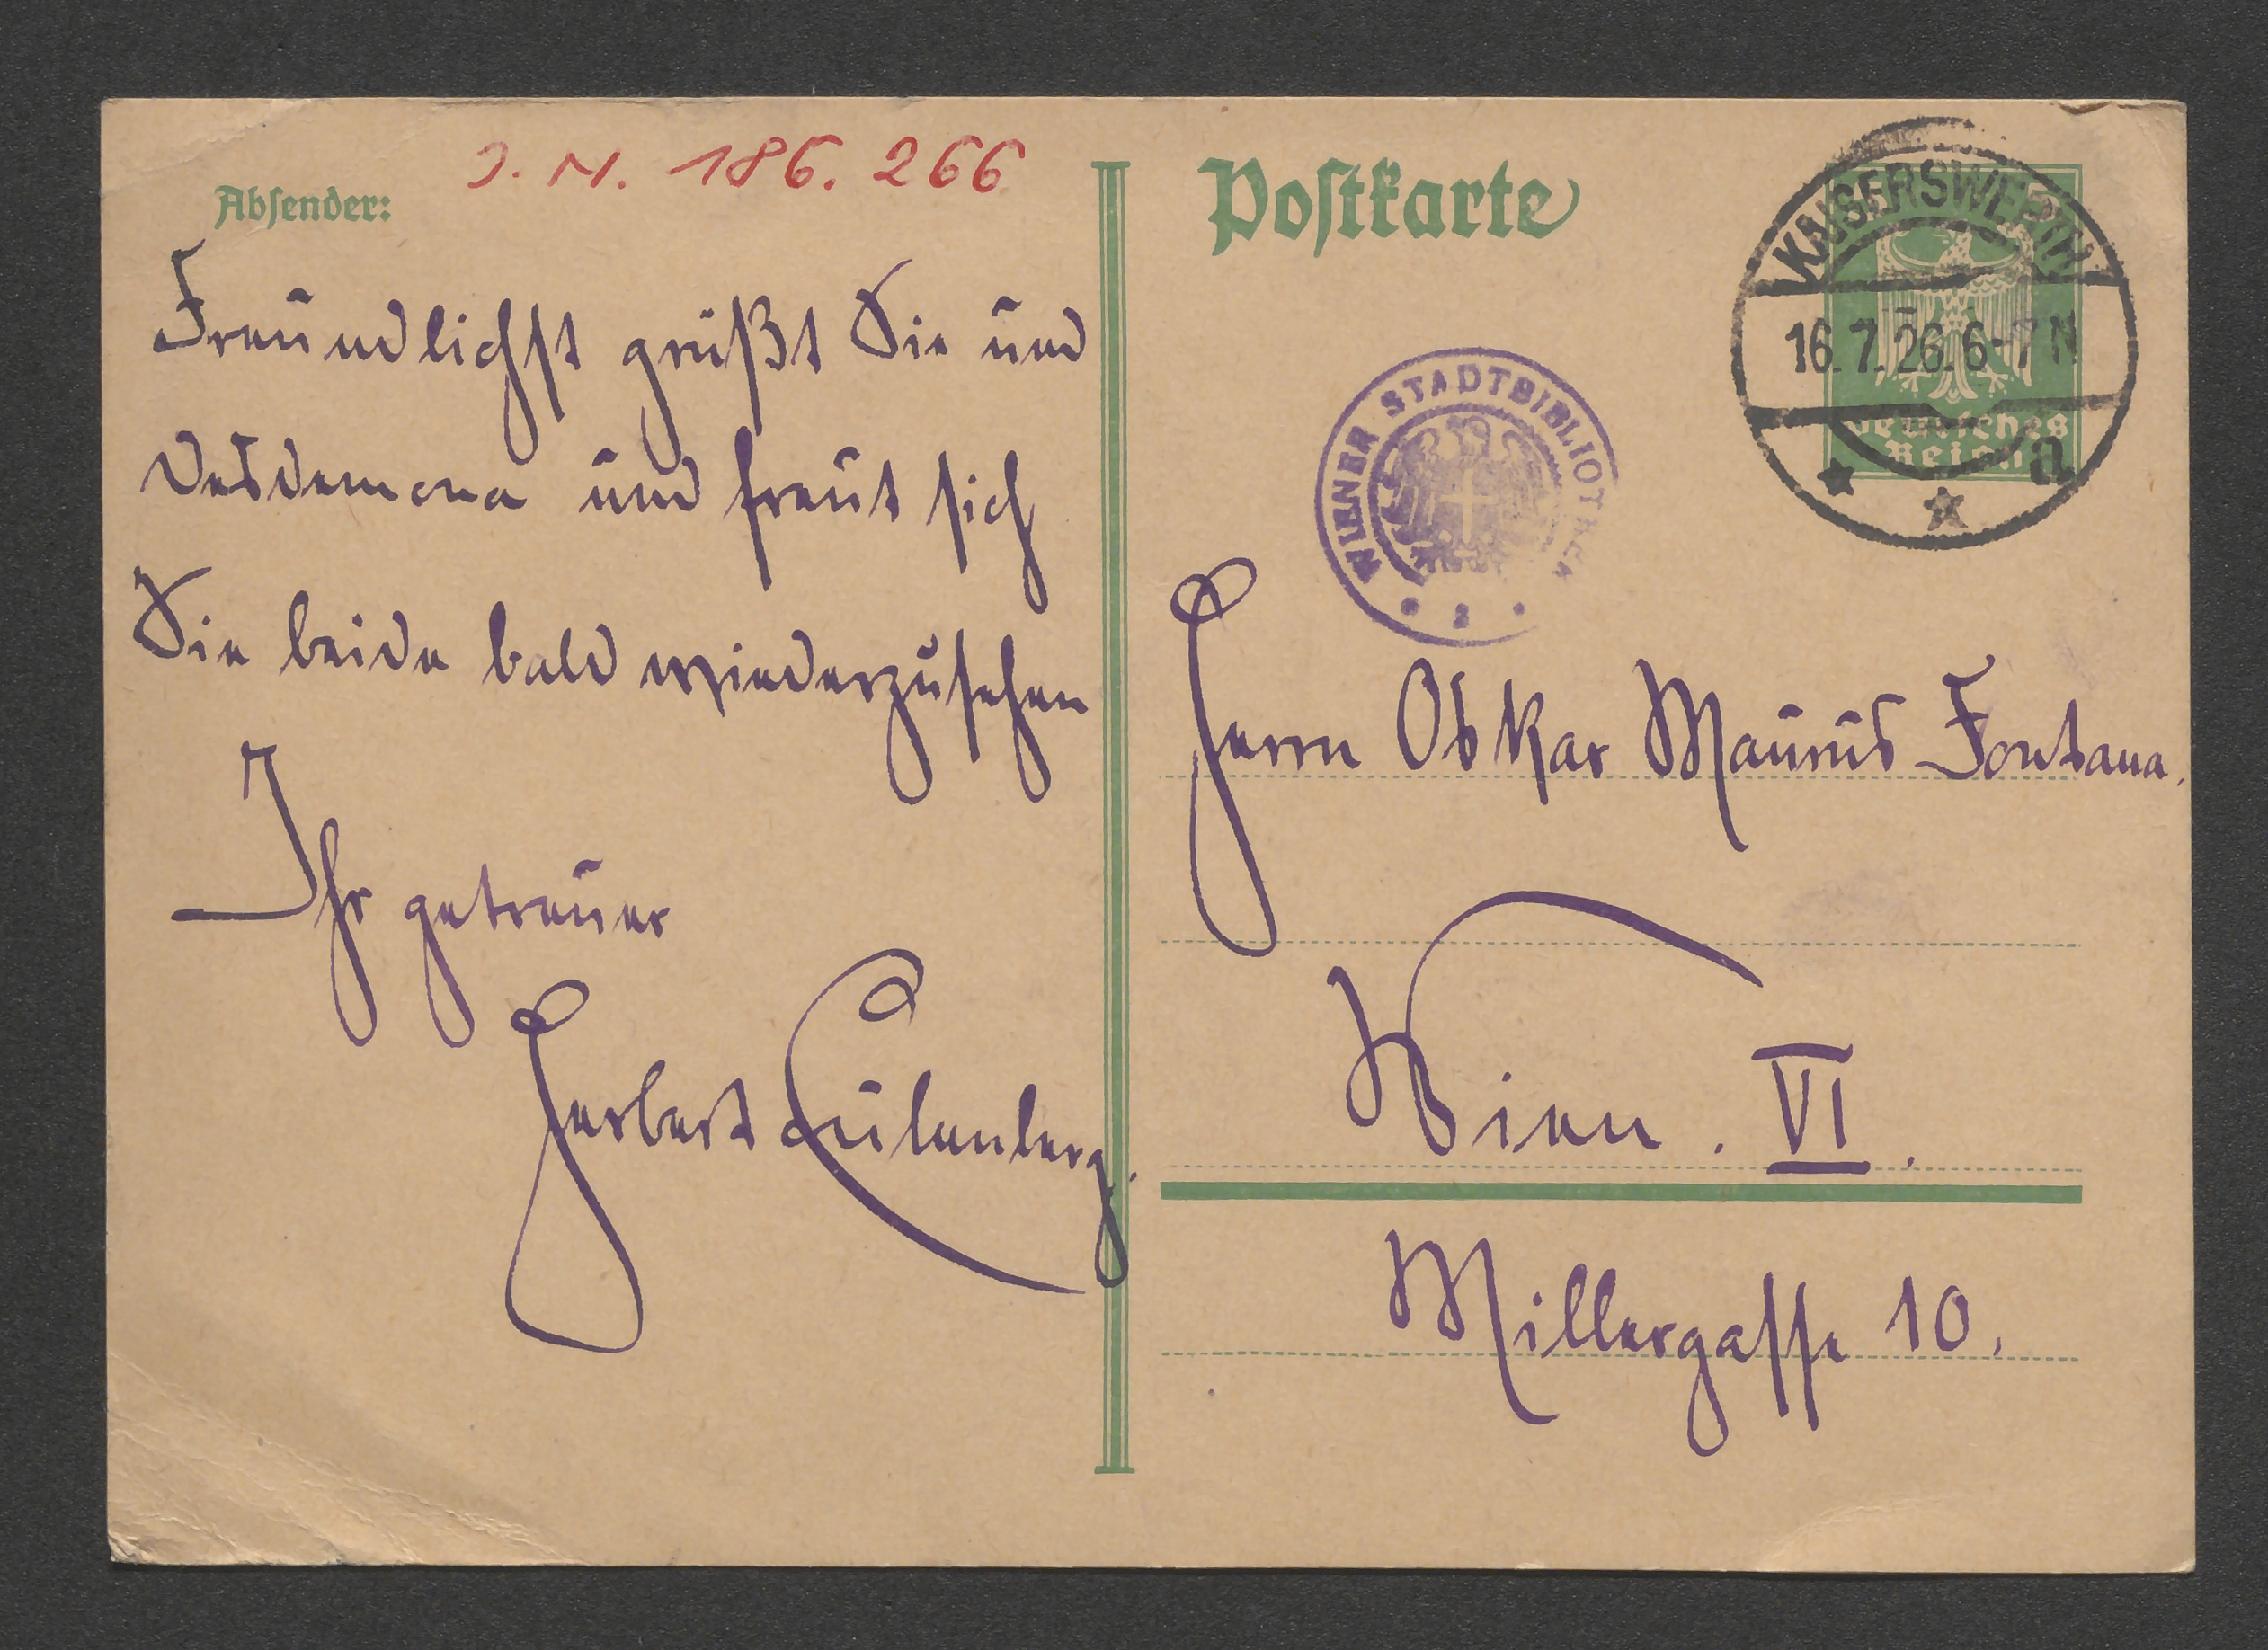 J. N. 186.266
Absender:
Freundlichst grüßt Sie und
Desdemona und freut sich
Sie beide bald wiederzusehen
Ihr getreuer
Herbert Eulenberg.
Postkarte
KAISERSWERTH
16.7.26.6-7N
a
Deutsches
Reich
WIENER STADTBIBLIOTHEK
Herrn Oskar Maurus Fontana.
Wien. VI.
Millergasse 10.